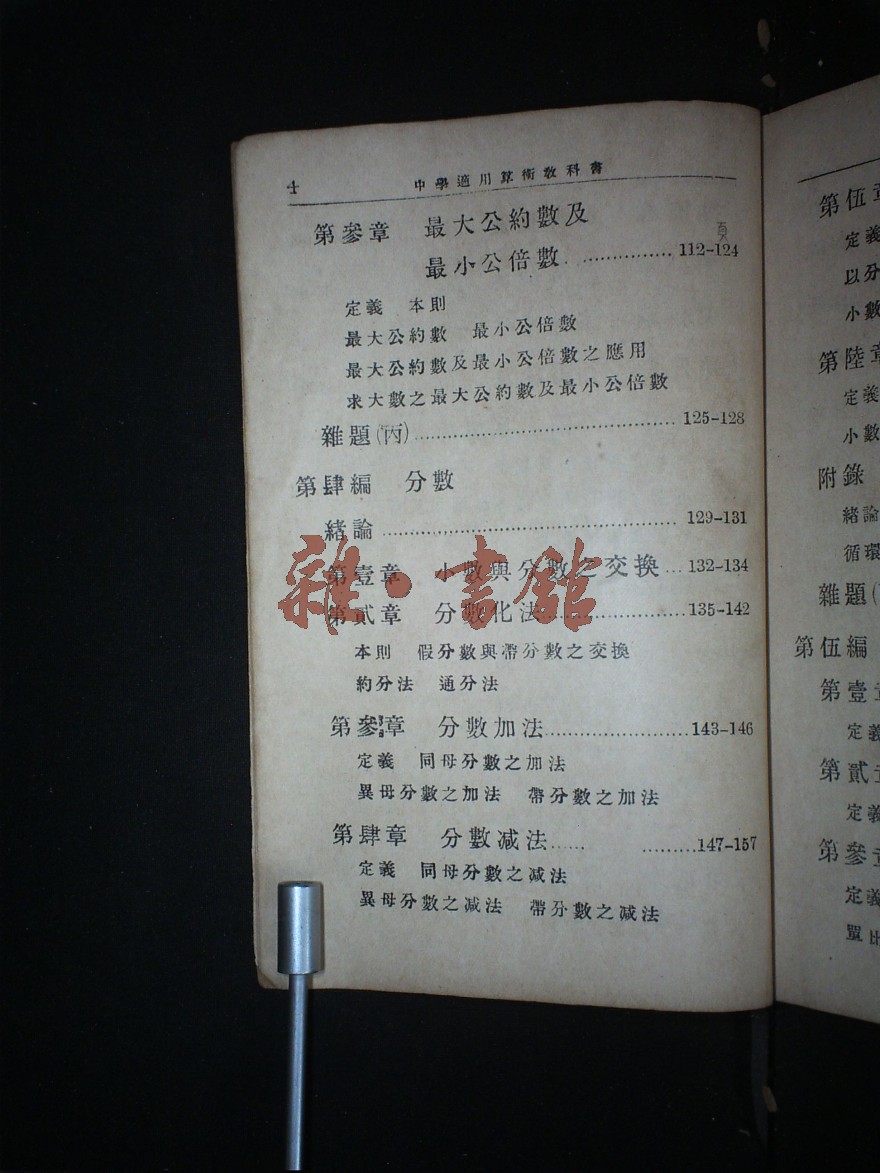 4 中學適用算術敎科書
第參章 最大公約數及 頁
最小公倍數 ................ 112-124
定義 本則
最大公約數 最小公倍數
最大公約數及最小公倍數之應用
求大數之最大公約數及最小公倍數
雜題(丙) ................ 125-128
第肆編 分數
緒論 ................ 129-131
第壹章 小數與分數之交換 ... 132-134
第貳章 分數化法 ................ 135-142
本則 假分數與帶分數之交換
約分法 通分法
第參章 分數加法 ................ 143-146
定義 同母分數之加法
異母分數之加法 帶分數之加法
第肆章 分數減法 ...... ......... 147-157
定義 同母分數之減法
異母分數之減法 帶分數之減法
雜·書館
第伍章
定義
以分
小數
第陸章
定義
小數
附錄
緒論
循環
雜題(
第伍編
第壹章
定義
第貳章
定義
第參章
定義
單比